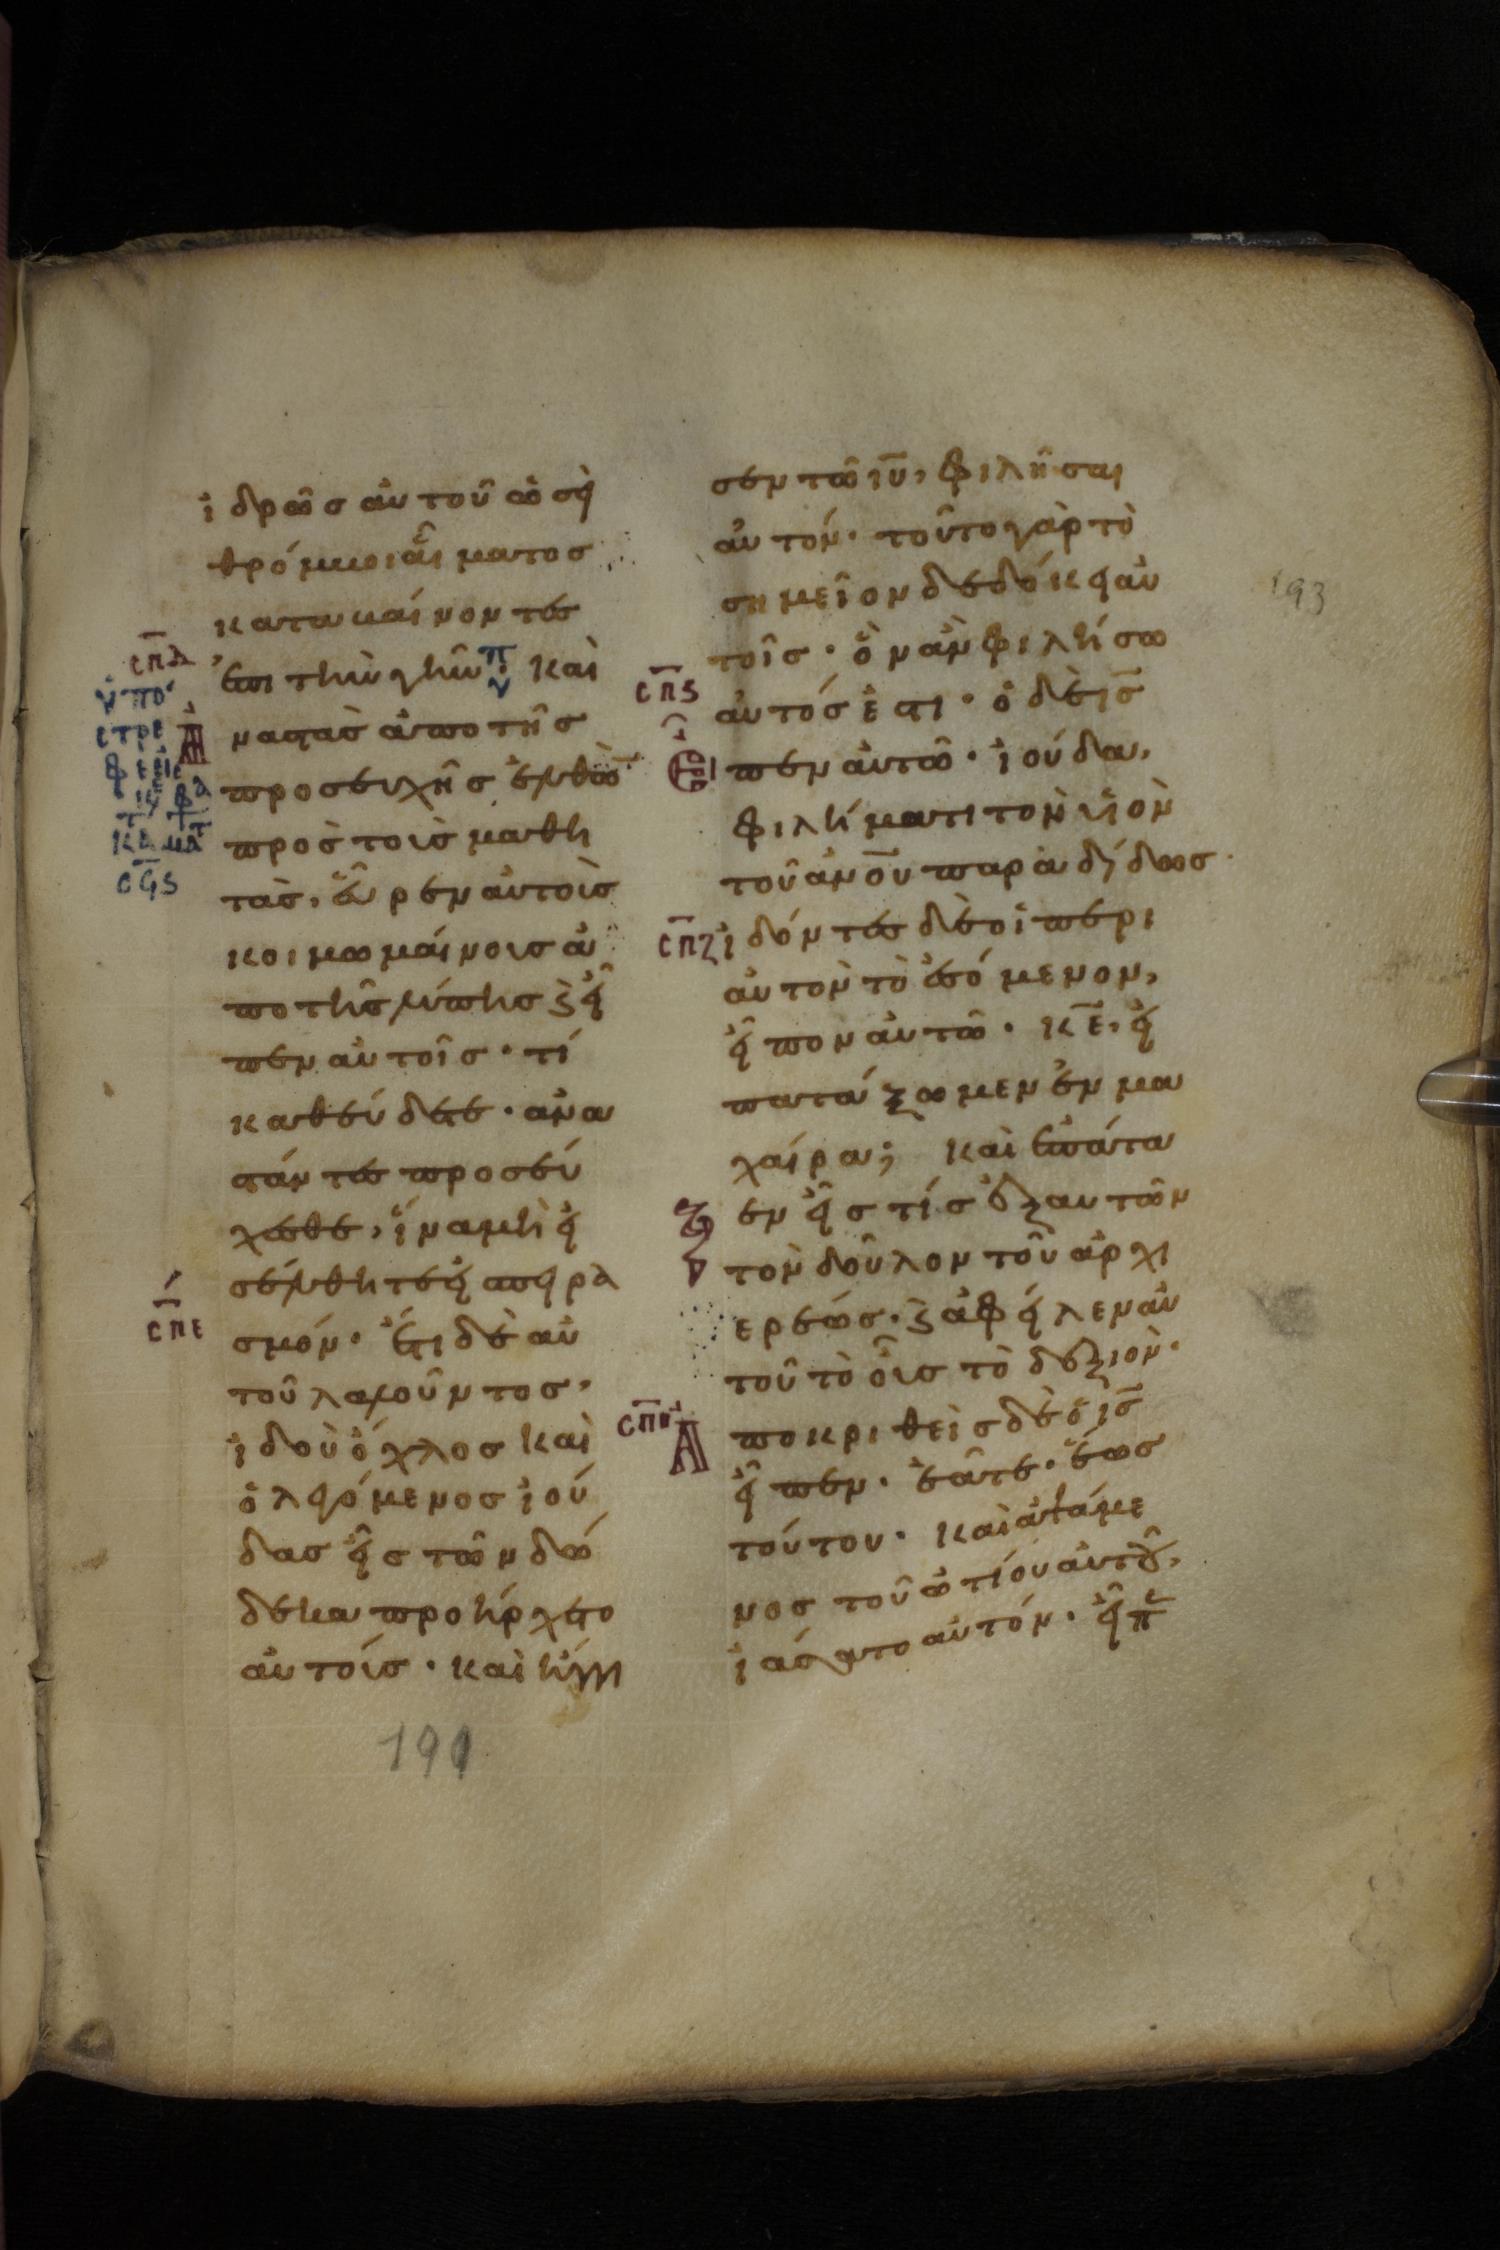 ἱδρὼς αὐτοῦ ὡσεὶ
θρόμβοι αἵματος
καταβαίνοντες
ἐπὶ τὴν γῆν· καὶ
ἀναστὰς ἀπὸ τῆς
προσευχῆς ἐλθὼ̅
πρὸς τοὺς μαθη
τὰς, εὗρεν αὐτοὺς
κοιμωμένους ἀ
πὸ τῆς λύπης ϗ εἶ
πεν αὐτοῖς· τί
καθεύδετε· ἀνα
στάντες προσεύ
χεσθε, ἵνα μὴ εἰ
σέλθητε εἰς πειρα
σμόν· ἔτι δὲ αὐ
τοῦ λαλοῦντος,
ἰδοὺ ὄχλος καὶ
ὁ λεγόμενος ἰού
δας εἷς τῶν δώ
δεκα προήρχετο
αὐτοῖς· καὶ ἤγγι
191
σεν τῶ ι̅υ̅, φιλῆσαι
αὐτόν· τοῦτο γὰρ τὸ
σημεῖον δεδώκει αὐ
τοῖς· ὃν ἂν φιλήσω
αὐτός ἐστι· ὁ δὲ ι̅ς̅
εἶπεν αὐτῶ· ἰούδα,
φιλήματι τὸν υἱὸν
τοῦ α̅ν̅ο̅υ̅ παραδίδως
ἰδόντες δὲ οἱ περὶ
αὐτὸν τὸ ἐσόμενον,
εἶπον αὐτῶ· κ̅ε̅, εἰ
πατάξωμεν ἐν μα
χαίρα; καὶ ἐπάτα
ξεν εἷς τίς ἐξ αυτῶν
τὸν δοῦλον τοῦ ἀρχι
ερέως· ϗ ἀφεῖλεν αὐ
τοῦ τὸ οὖς τὸ δεξιὸν·
ἀποκριθεὶς δὲ ὁ ι̅ς̅
εἶπεν· ἐᾶτε· ἕως
τούτου· καὶ ἁψάμε
νος τοῦ ὠτίου αὐτοῦ,
ἰάσατο αὐτόν· εἶπε
193
ς̅π̅δ̅
ς̅π̅ε̅
ς̅π̅ϛ̅
ς̅π̅ζ̅
ς̅π̅η̅